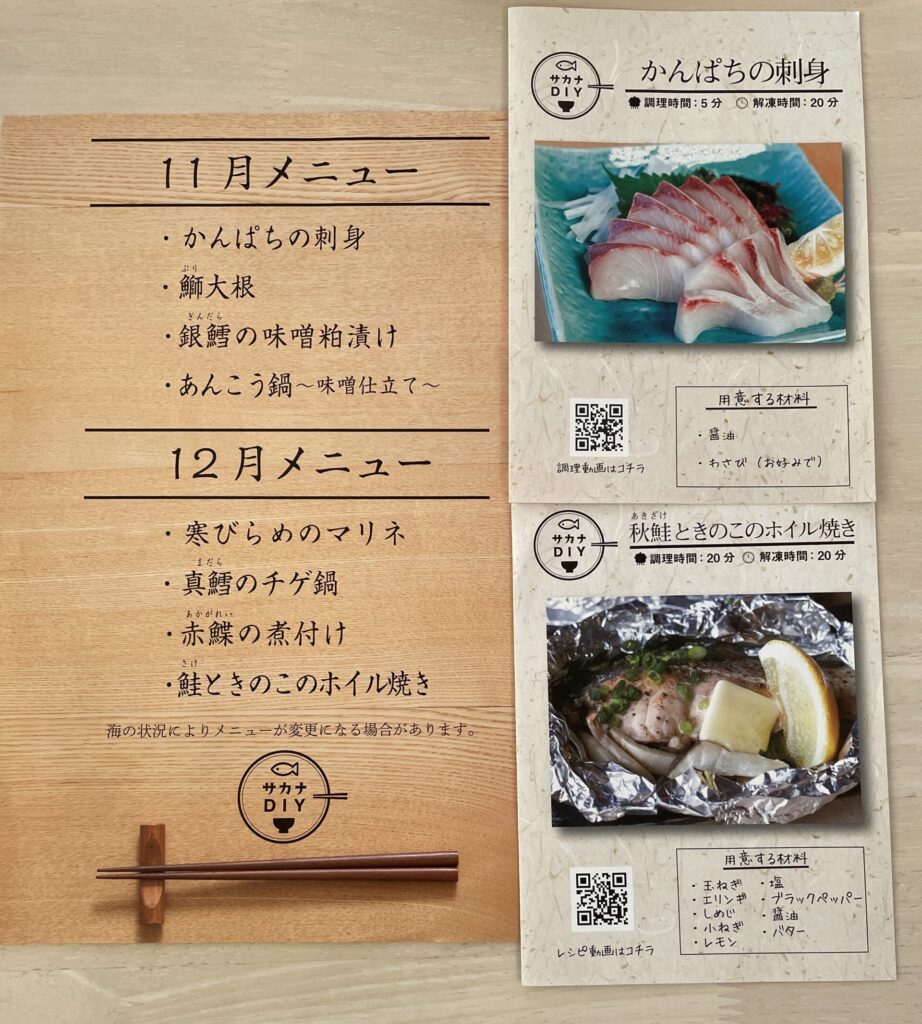 11月メニュー
・かんぱちの刺身
ぶり
・鰤大根
ぎんだら
・銀鱈の味噌粕漬け
・あんこう鍋～味噌仕立て～
12月メニュー
・寒びらめのマリネ
まだら
・真鱈のチゲ鍋
あかがれい
・赤鰈の煮付け
さけ
・鮭ときのこのホイル焼き
海の状況によりメニューが変更になる場合があります。
サカナ
DIY
サカナ
DIY
かんぱちの刺身
調理時間：5分 解凍時間：20分
調理動画はコチラ
用意する材料
・醤油
・わさび（お好みで）
サカナ
DIY
あきざけ
秋鮭ときのこのホイル焼き
調理時間：20分 解凍時間：20分
レシピ動画はコチラ
用意する材料
・玉ねぎ
・エリンギ
・しめじ
・小ねぎ
・レモン
・塩
・ブラックペッパー
・醤油
・バター